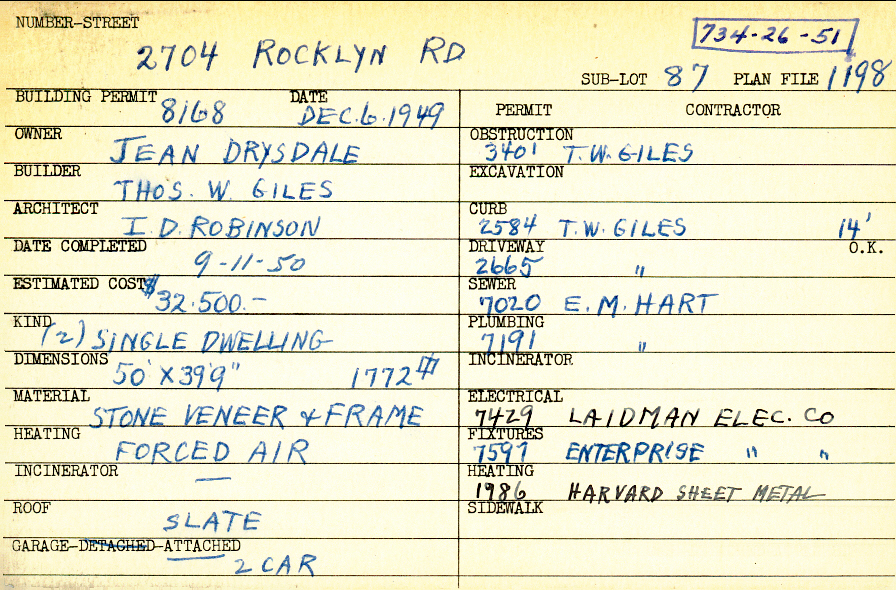 NUMBER-STREET
734-26-51
2704 ROCKLYN RD
SUB-LOT 87 PLAN FILE 1198
BUILDING PERMIT 8168 DATE DEC. 6. 1949
OWNER JEAN DRYSDALE
BUILDER THOS. W. GILES
ARCHITECT I. D. ROBINSON
DATE COMPLETED 9-11-50
ESTIMATED COST $32.500.-
KIND (2) SINGLE DWELLING
DIMENSIONS 50' X 39'9" 1772
MATERIAL STONE VENEER & FRAME
HEATING FORCED AIR
INCINERATOR —
ROOF SLATE
GARAGE-DETACHED-ATTACHED
2 CAR
PERMIT CONTRACTOR
OBSTRUCTION
3401 T.W. GILES
EXCAVATION
CURB
2584 T.W. GILES 14'
DRIVEWAY O.K.
2665 "
SEWER
7020 E.M. HART
PLUMBING
7191 "
INCINERATOR
ELECTRICAL
7429 LAIDMAN ELEC. CO
FIXTURES
7597 ENTERPRISE " "
HEATING
1986 HARVARD SHEET METAL
SIDEWALK